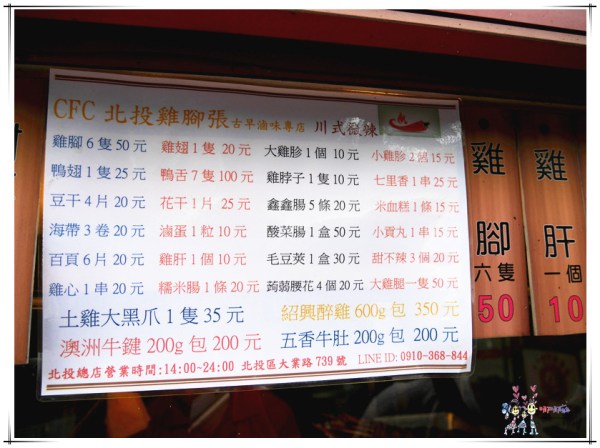 CFC 北投雞腳張 古早滷味專店 川式微辣
雞腳 6 隻 50 元 雞翅 1 隻 20 元 大雞胗 1 個 10 元 小雞胗 2個 15 元
鴨翅 1 隻 25 元 鴨舌 7 隻 100 元 雞脖子 1 隻 10 元 七里香 1 串 25 元
豆干 4 片 20 元 花干 1 片 25 元 鑫鑫腸 5 條 20 元 米血糕 1 條 15 元
海帶 3 卷 20 元 滷蛋 1 粒 10 元 酸菜腸 1 盒 50 元 小貢丸 1 串 15 元
百頁 6 片 20 元 雞肝 1 個 10 元 毛豆莢 1 盒 30 元 甜不辣 3 個 20 元
雞心 1 串 20 元 糯米腸 1 條 20 元 蒟蒻腰花 4 個 20 元 大雞腿一隻 50 元
土雞大黑爪 1 隻 35 元 紹興醉雞 600g 包 350 元
澳洲牛鍵 200g 包 200 元 五香牛肚 200g 包 200 元
北投總店營業時間:14:00~24:00 北投區大業路 739 號 LINE ID: 0910-368-844
雞腳
六隻
50
雞肝
一個
10